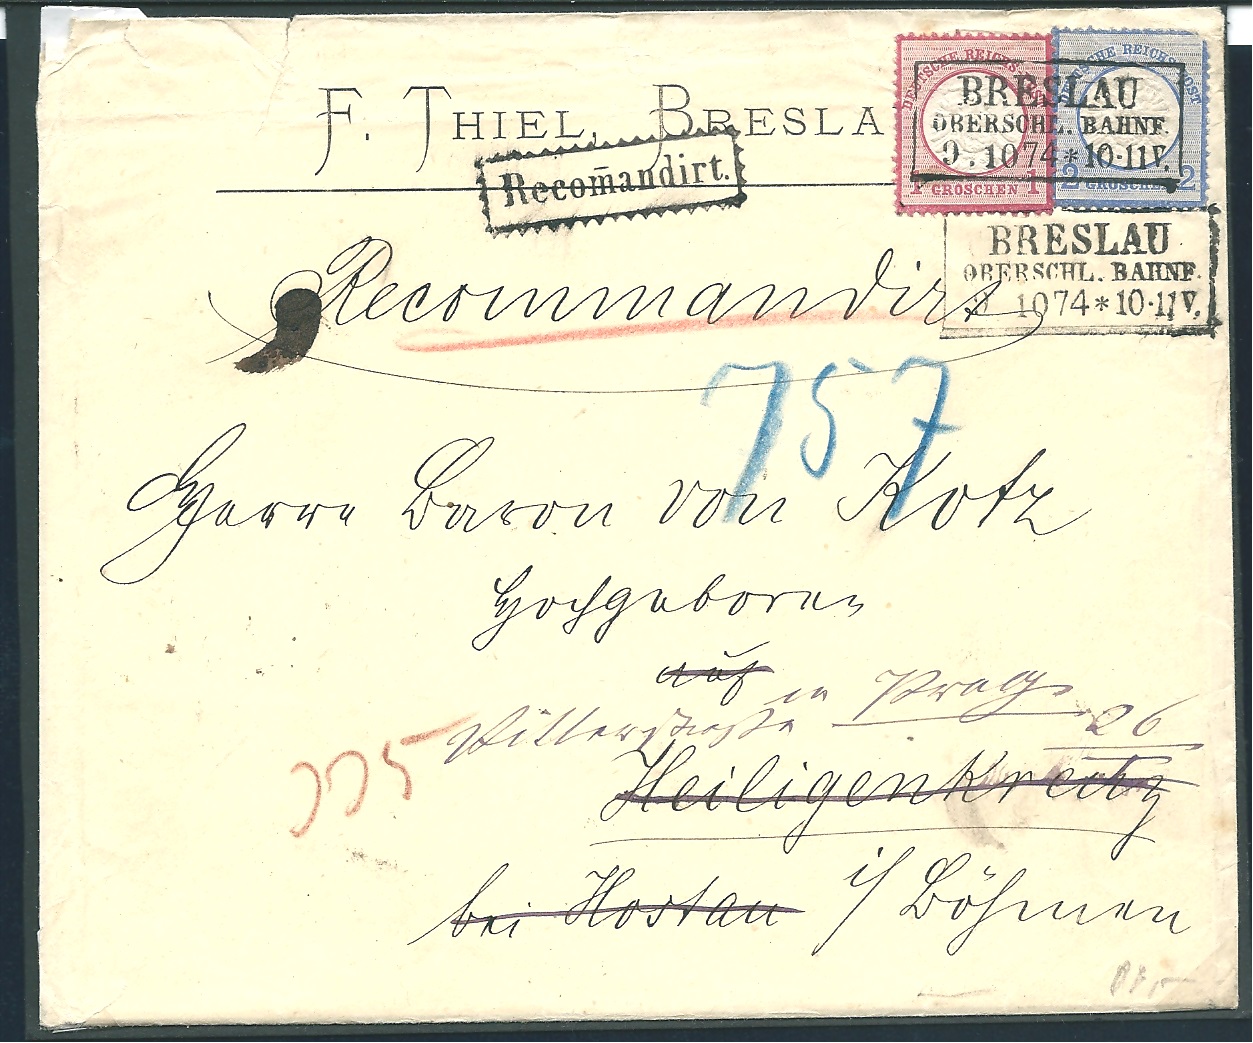 F. THIEL, BRESLA
DEUTSCHE REICHS-POST
1 GROSCHEN 1
DEUTSCHE REICHS-POST
2 GROSCHEN 2
BRESLAU
OBERSCHL. BAHNF.
9. 10 74 * 10-11 V.
Recom̄andirt.
BRESLAU
OBERSCHL. BAHNF.
9 10 74 * 10-11 V.
Recommandirt
757
Herrn Baron von Kotz
Hochgeboren
auf
in Prag
26
775
Heiligenkreuz
bei Hostau i/ Böhmen